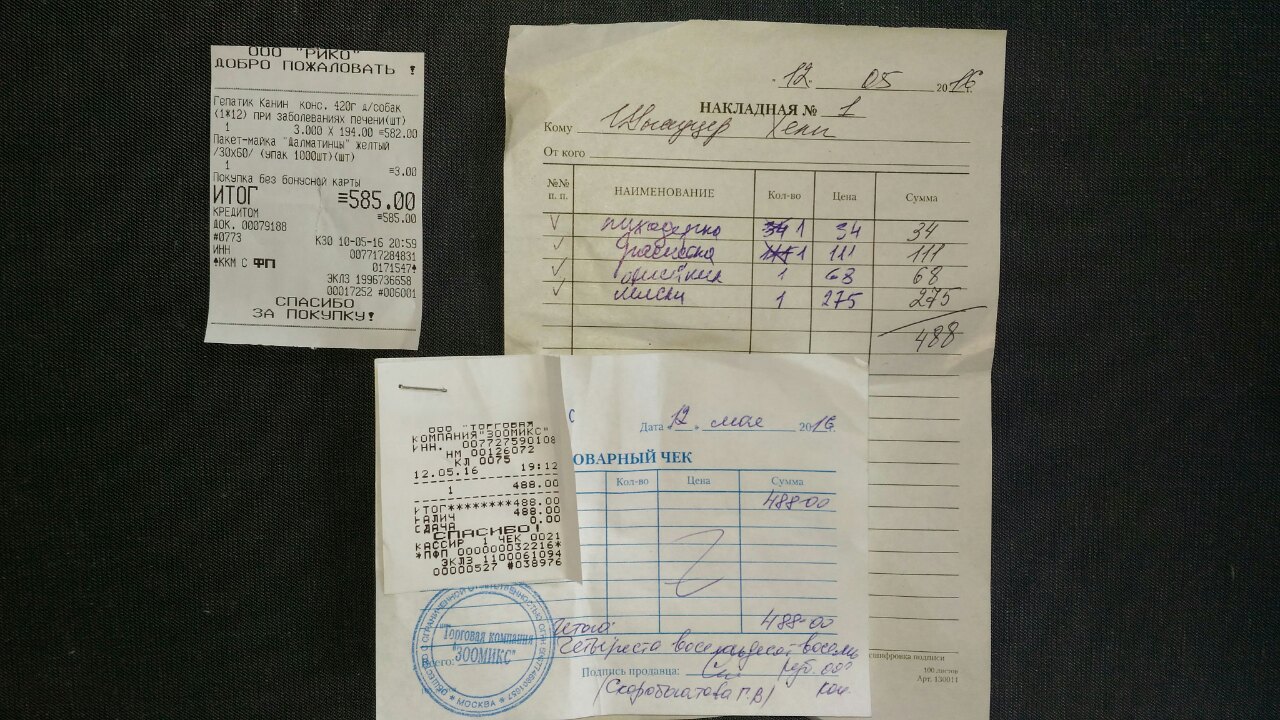 ООО "РИКО"
ДОБРО ПОЖАЛОВАТЬ !
Гепатик Канин конс. 420г д/собак
(1*12) при заболеваниях печени(шт)
1 3.000 X 194.00 =582.00
Пакет-майка "Далматинцы" желтый
/30х60/ (упак 1000шт)(шт)
1 =3.00
Покупка без бонусной карты
ИТОГ =585.00
КРЕДИТОМ =585.00
ДОК. 00079188
#0773 К30 10-05-16 20:59
ИНН 007717284831
*ККМ С ФП 0171547*
ЭКЛЗ 1996736658
00017252 #006001
СПАСИБО
ЗА ПОКУПКУ!
12. 05 2016
НАКЛАДНАЯ № 1
Кому Шнауцер Хели
От кого
№№ п. п. НАИМЕНОВАНИЕ Кол-во Цена Сумма
пуходерка 1 34 34
1 111 111
ошейник 1 68 68
миски 1 275 275
488
расшифровка подписи
100 листов
Арт. 130011
ООО "ТОРГОВАЯ
КОМПАНИЯ"ЗООМИКС"
ИНН. 007727590108
НМ 00126072
КЛ 0075
12.05.16 19:12
1 488.00
ИТОГ********488.00
НАЛИЧ 488.00
СДАЧА 0.00
СПАСИБО!
КАССИР 1 ЧЕК 0021
*ПФП 000000032216*
ЭКЛЗ 1100061094
00000527 #038976
Дата 12. мая 2016
ОВАРНЫЙ ЧЕК
Кол-во Цена Сумма
488-00
Итого: 488-00
Всего: Четыреста восемьдесят восемь
руб. 00
Подпись продавца:
(Скоробогатова Г.В) коп.
Торговая компания
"ЗООМИКС"
* МОСКВА *